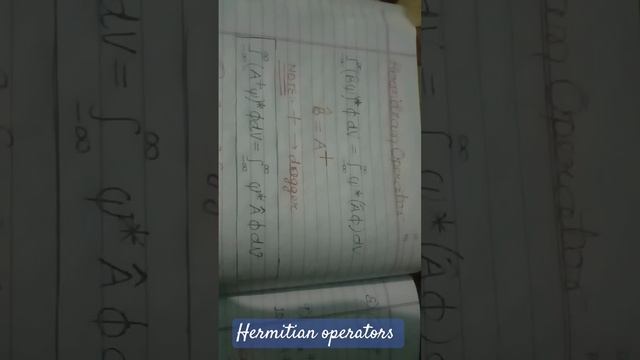 Hermitian Operator
∫_{-∞}^{∞} (Bψ)* ϕ dV = ∫_{-∞}^{∞} ψ* (Âϕ) dV
B̂ = A†
NOTE:- † → dagger
∫_{-∞}^{∞} (A†ψ)* ϕ dV = ∫_{-∞}^{∞} ψ* Â ϕ dV
Hermitian operators